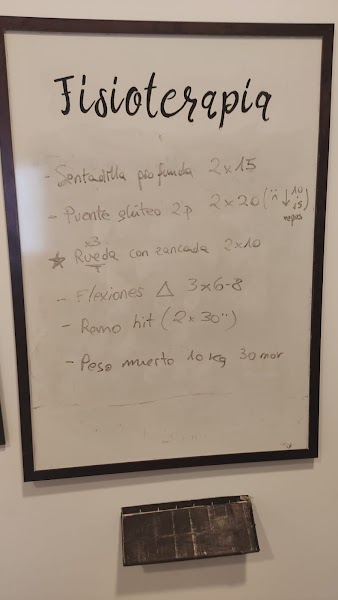 Fisioterapia
- Sentadilla profunda 2x15
- Puente glúteo 2p 2x20 (¨n ↓ 10 is) reps
x3
★ Rueda con zancada 2x10
T
- Flexiones △ 3x6-8
- Remo hit (2x30'')
- Peso muerto 10kg 30 mor